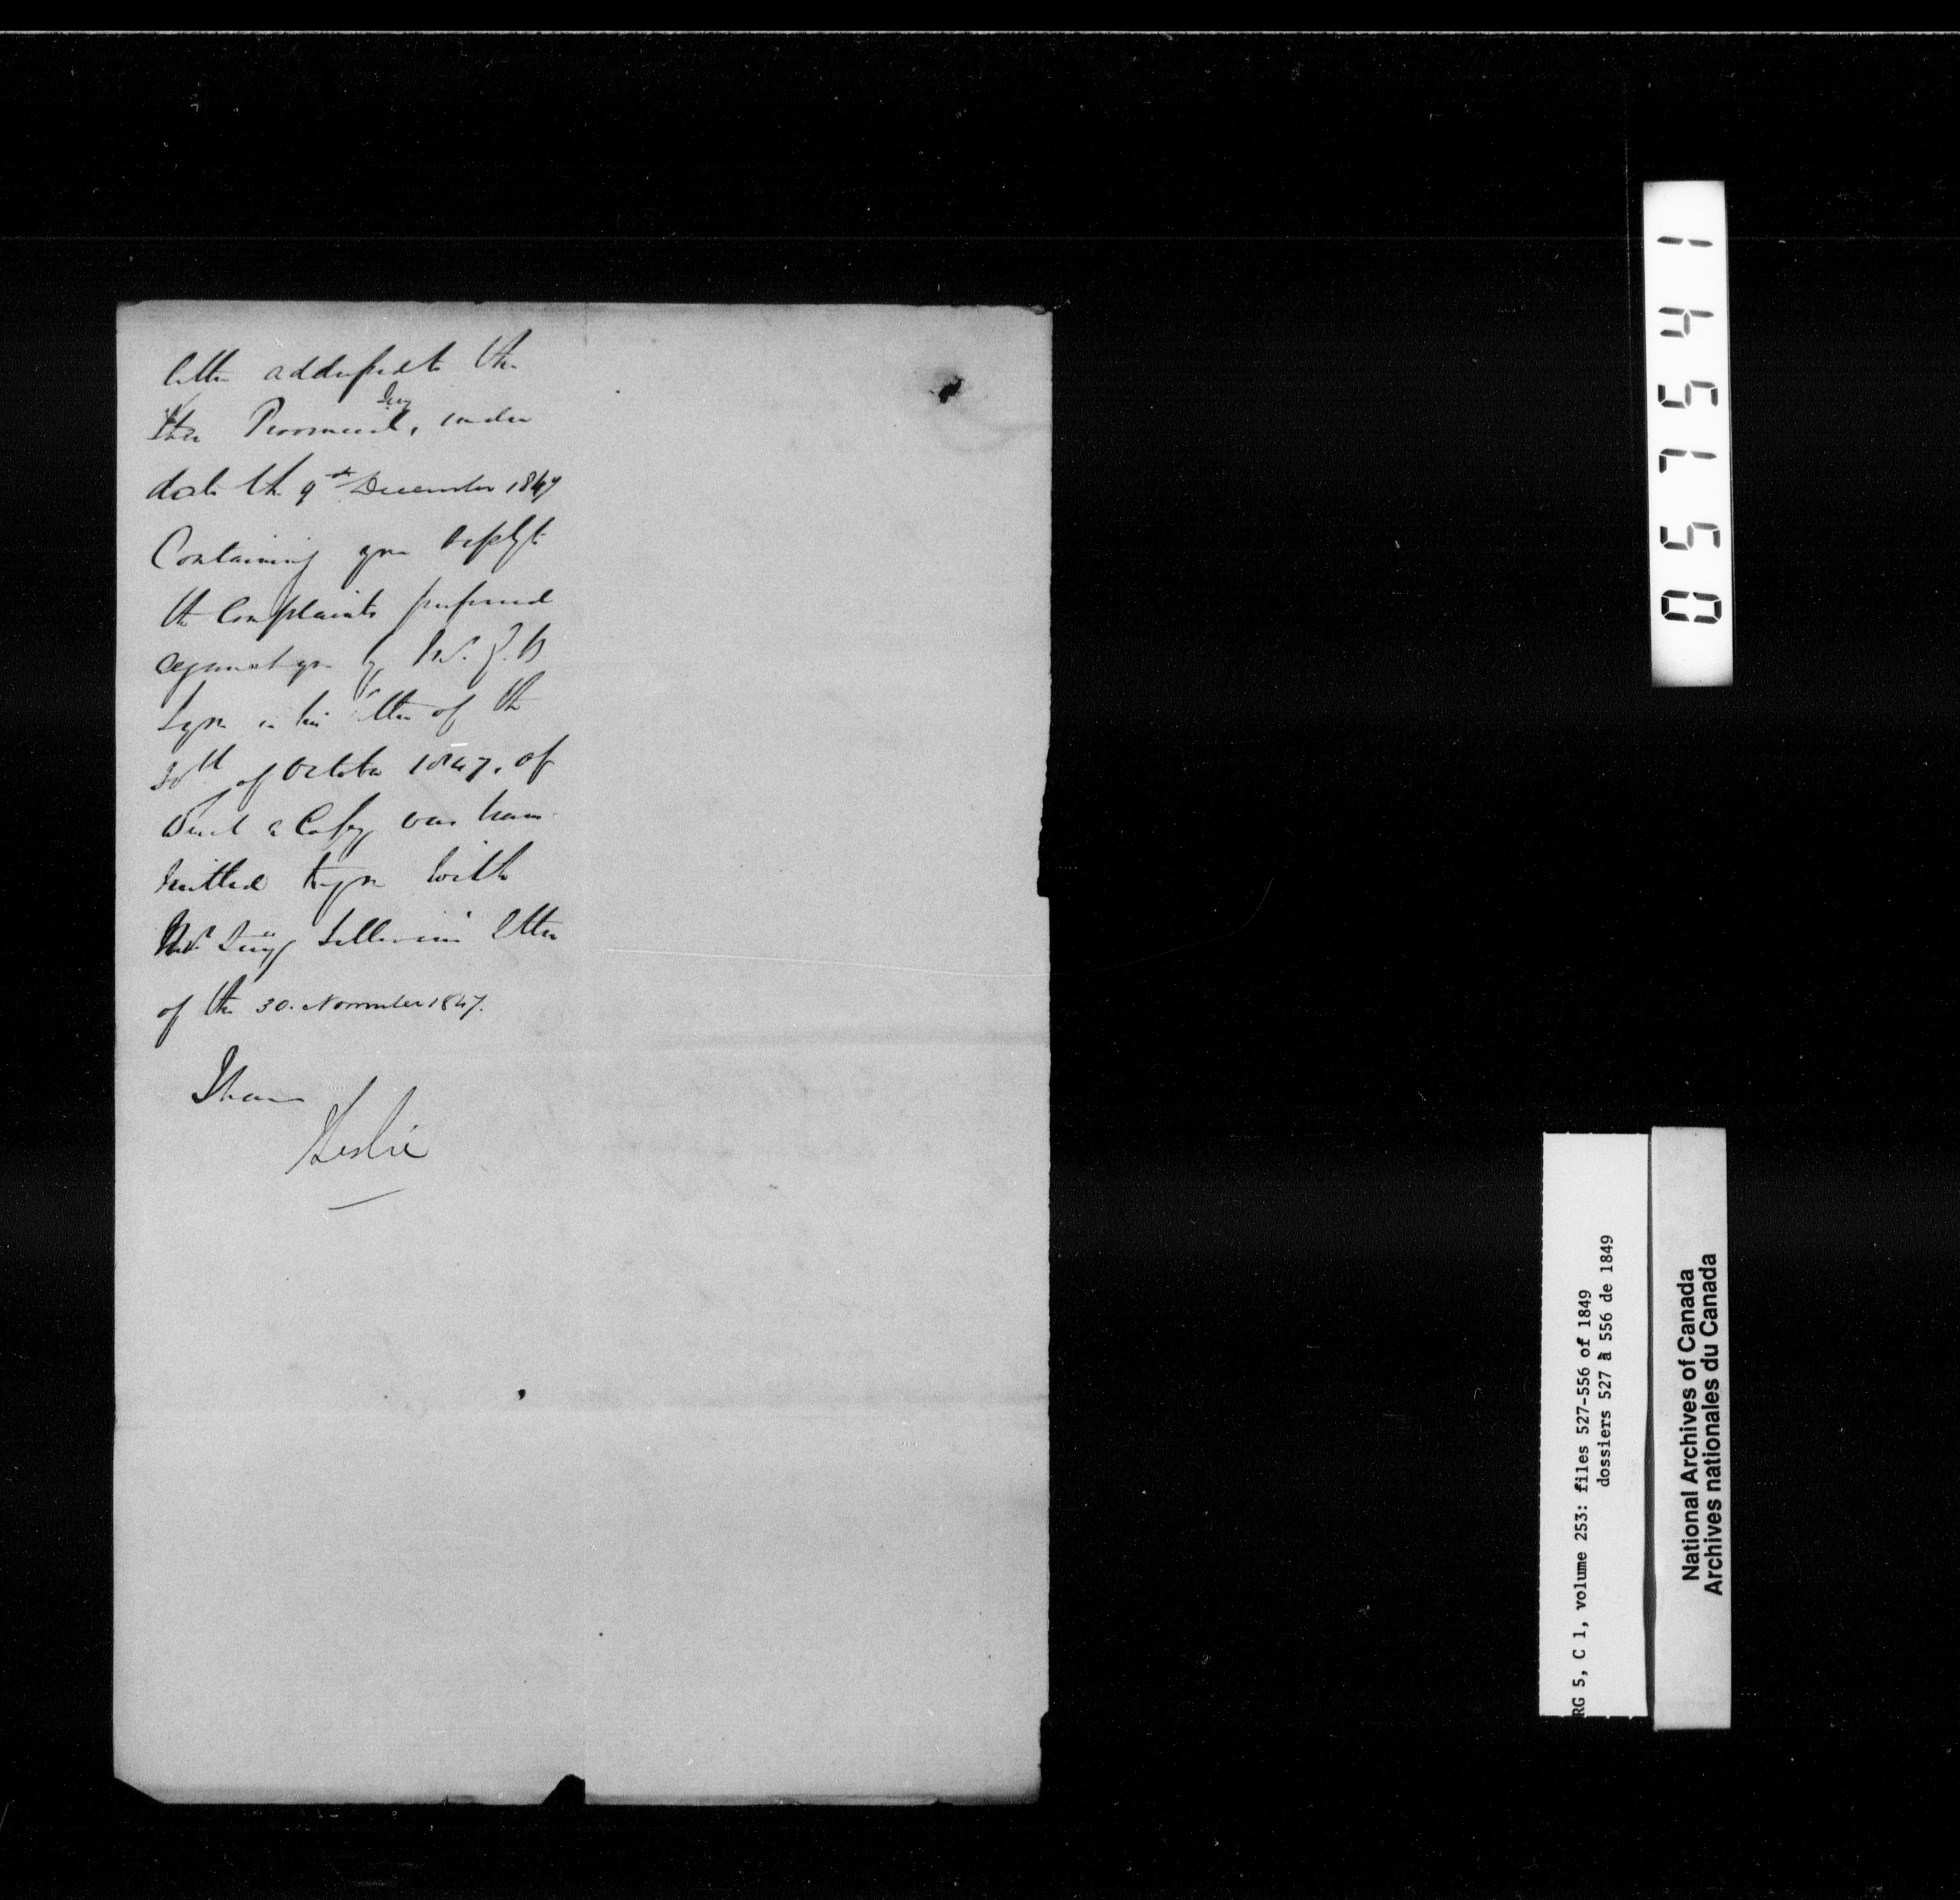 letter addressed to the
then Provincial Secy, under
date the 9th December 1847
Containing your reply to
the Complaints preferred
against you by Mr. J. B
in his letter of the
30th of October 1847, of
which a Copy was trans-
mitted to you with
letter
of the 30. November 1847.
I have
J Leslie
057541
RG 5, C 1, volume 253: files 527-556 of 1849
dossiers 527 à 556 de 1849
National Archives of Canada
Archives nationales du Canada